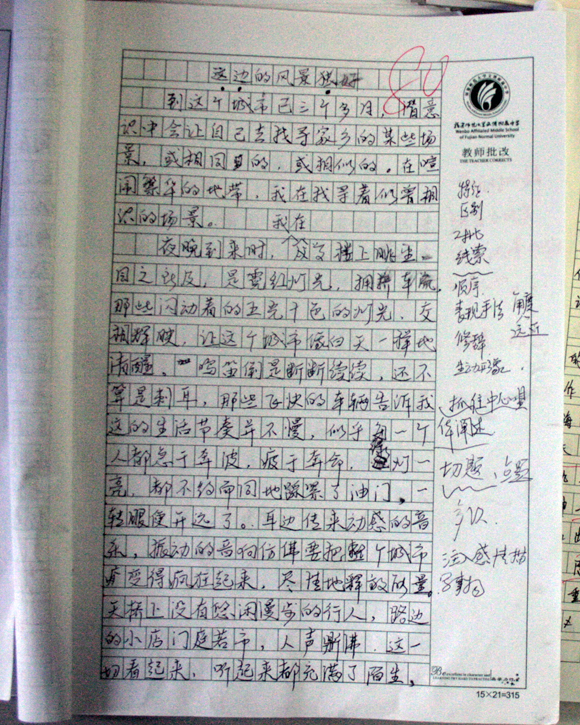 这边的风景独好
80
到这个城市已三个多月,潜意
识中会让自己去找寻家乡的某些场
景,或相同的,或相似的。在喧
闹繁华的地带,我在找寻着似曾相
识的场景。
我在
夜晚到来时,天桥上眺望
目之所及,是霓虹灯光,拥挤车流,
那些闪动着的五光十色的灯光,交
相辉映,让这个城市像白天一样地
清醒,鸣笛倒是断断续续,还不
算是刺耳,那些飞快的车辆告诉我
这的生活节奏并不慢,似乎每一个
人都急于奔波,疲于奔命,绿灯一
亮,都不约而同地踩紧了油门,一
转眼便开远了。耳边传来动感的音
乐,振动的音响仿佛要把整个城市
变得疯狂起来,尽情地释放能量。
天桥上没有悠闲漫步的行人,路边
的小店门庭若市,人声鼎沸。这一
切看起来,听起来都充满了陌生,
Affiliated Middle School
of Fujian Normal University
教师批改
THE TEACHER CORRECTS
特征
区别
对比
线索
顺序
表现手法 角度
远近
修辞
生动形象.
抓住中心
阐述
切题、点题
注入感情
15×21=315